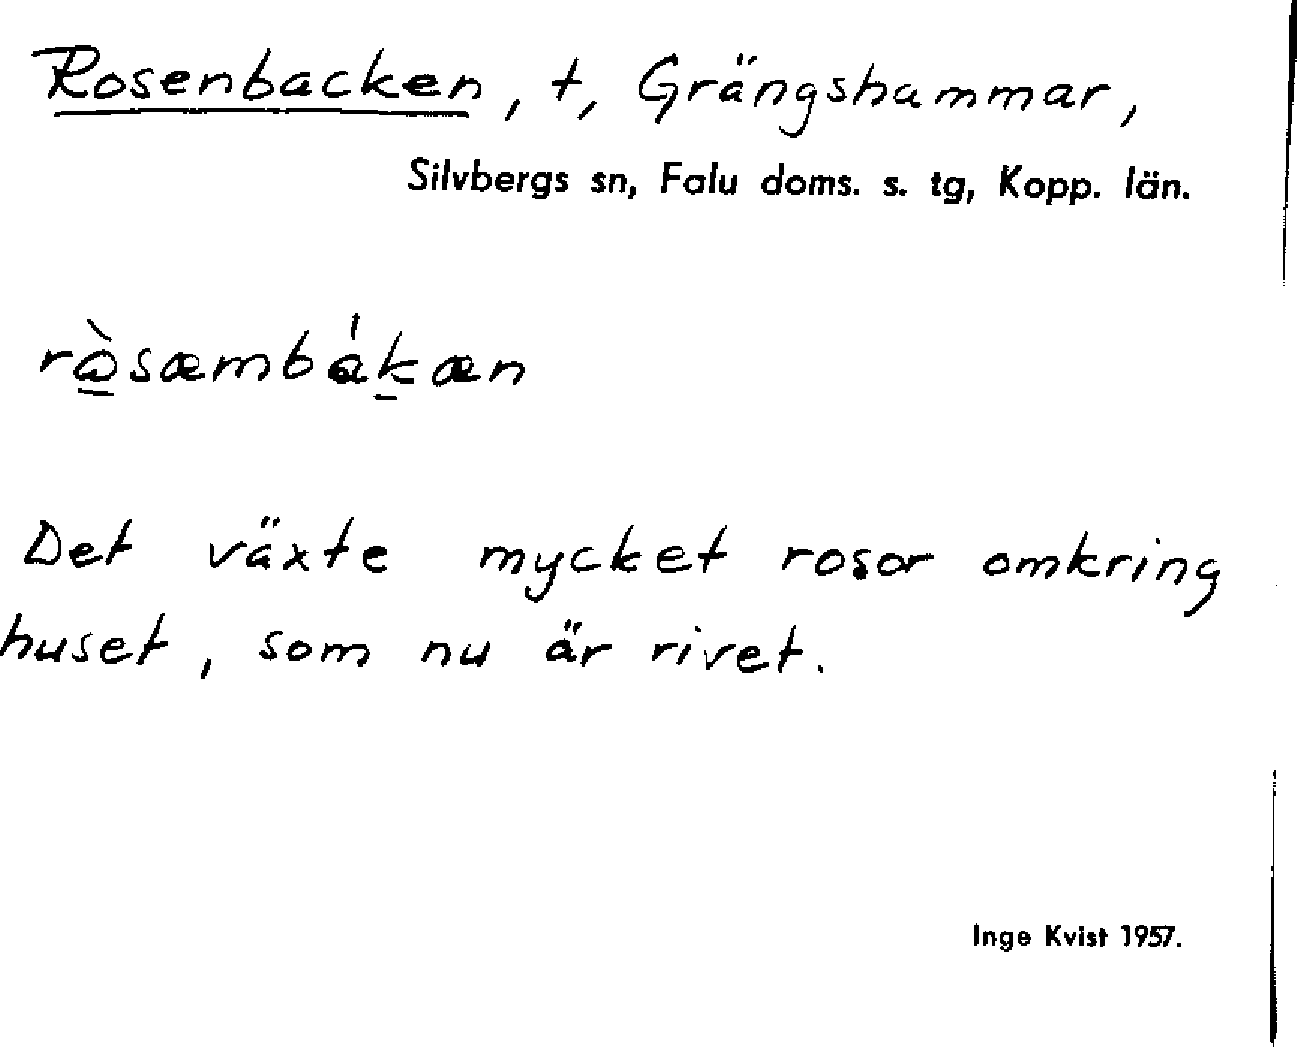 Rosenbacken, t, Grängshammar,
Silvbergs sn, Falu doms. s. tg, Kopp. län.
rò̲sæmbák̲æn
Det växte mycket rosor omkring
huset, som nu är rivet.
Inge Kvist 1957.